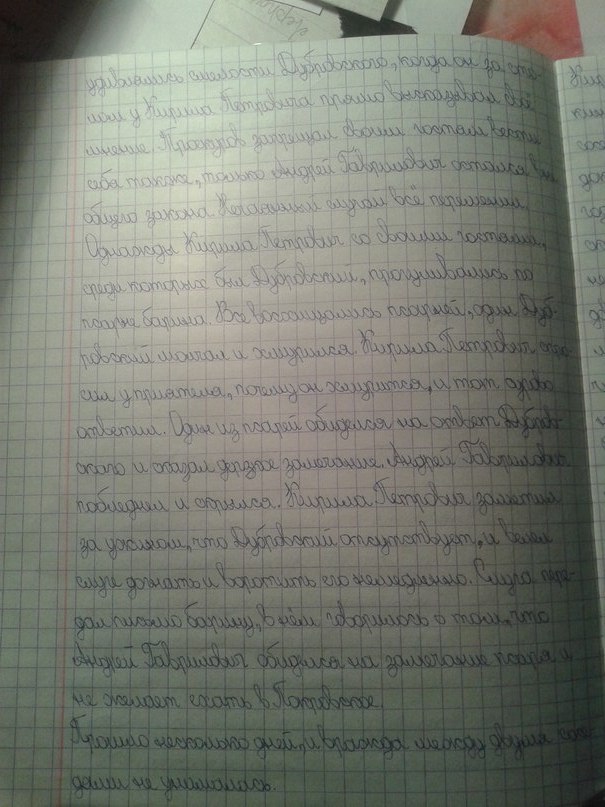 удивлялись смелости Дубровского, когда он за сто-
лом у Кирила Петровича прямо высказывал своё
мнение. Троекуров запрещал своим гостям вести
себя также, только Андрей Гаврилович остался вне
общего закона. Нечаянный случай всё переменил.
Однажды Кирила Петрович со своими гостями,
среди которых был Дубровский, прогуливались по
псарне барина. Все восхищались псарней, один Дуб-
ровский молчал и хмурился. Кирила Петрович спро-
сил у приятеля, почему он хмурится, и тот сурово
ответил. Один из псарей обиделся на ответ Дубров-
ского и сказал дерзкое замечание. Андрей Гаврилович
побледнел и скрылся. Кирила Петрович заметил
за ужином, что Дубровский отсутствует, и велел
слуге догнать и воротить его немедленно. Слуга пере-
дал письмо барину, в нём говорилось о том, что
Андрей Гаврилович обиделся на замечание псаря и
не желает ехать в Покровское.
Прошло несколько дней, и вражда между двумя сосе-
дями не унималась.